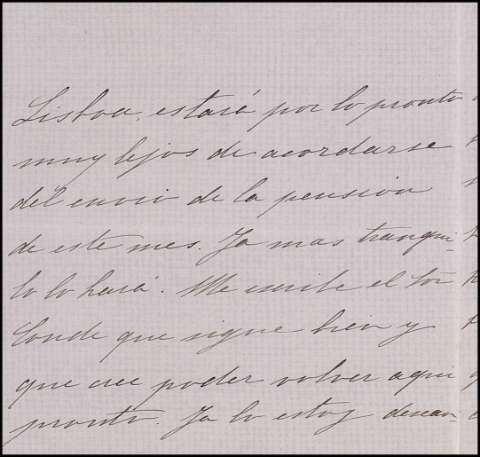 Lisboa, estará por lo pronto
muy lejos de acordarse
del envio de la pension
de este mes. Ya mas tranqui-
lo lo hará. Me escribe el
Conde que sigue bien y
que cree poder volver aqui
pronto. Ya lo estoy desean-